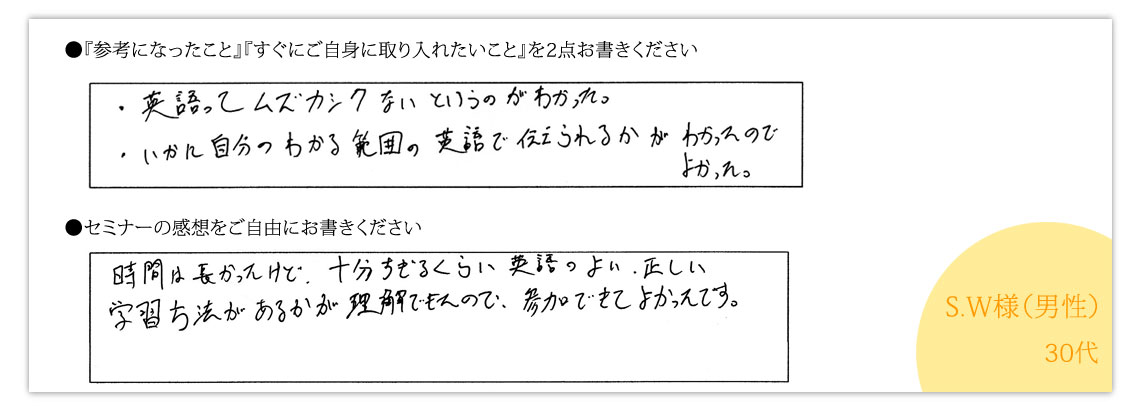 ●『参考になったこと』『すぐにご自身に取り入れたいこと』を2点お書きください
・英語ってムズカシクないというのがわかった。
・いかに自分のわかる範囲の英語で伝えられるかがわかったので
よかった。
●セミナーの感想をご自由にお書きください
時間は長かったけど、十分すぎるくらい英語のよい、正しい
学習方法があるかが理解できたので、参加できてよかったです。
S.W様（男性）
30代